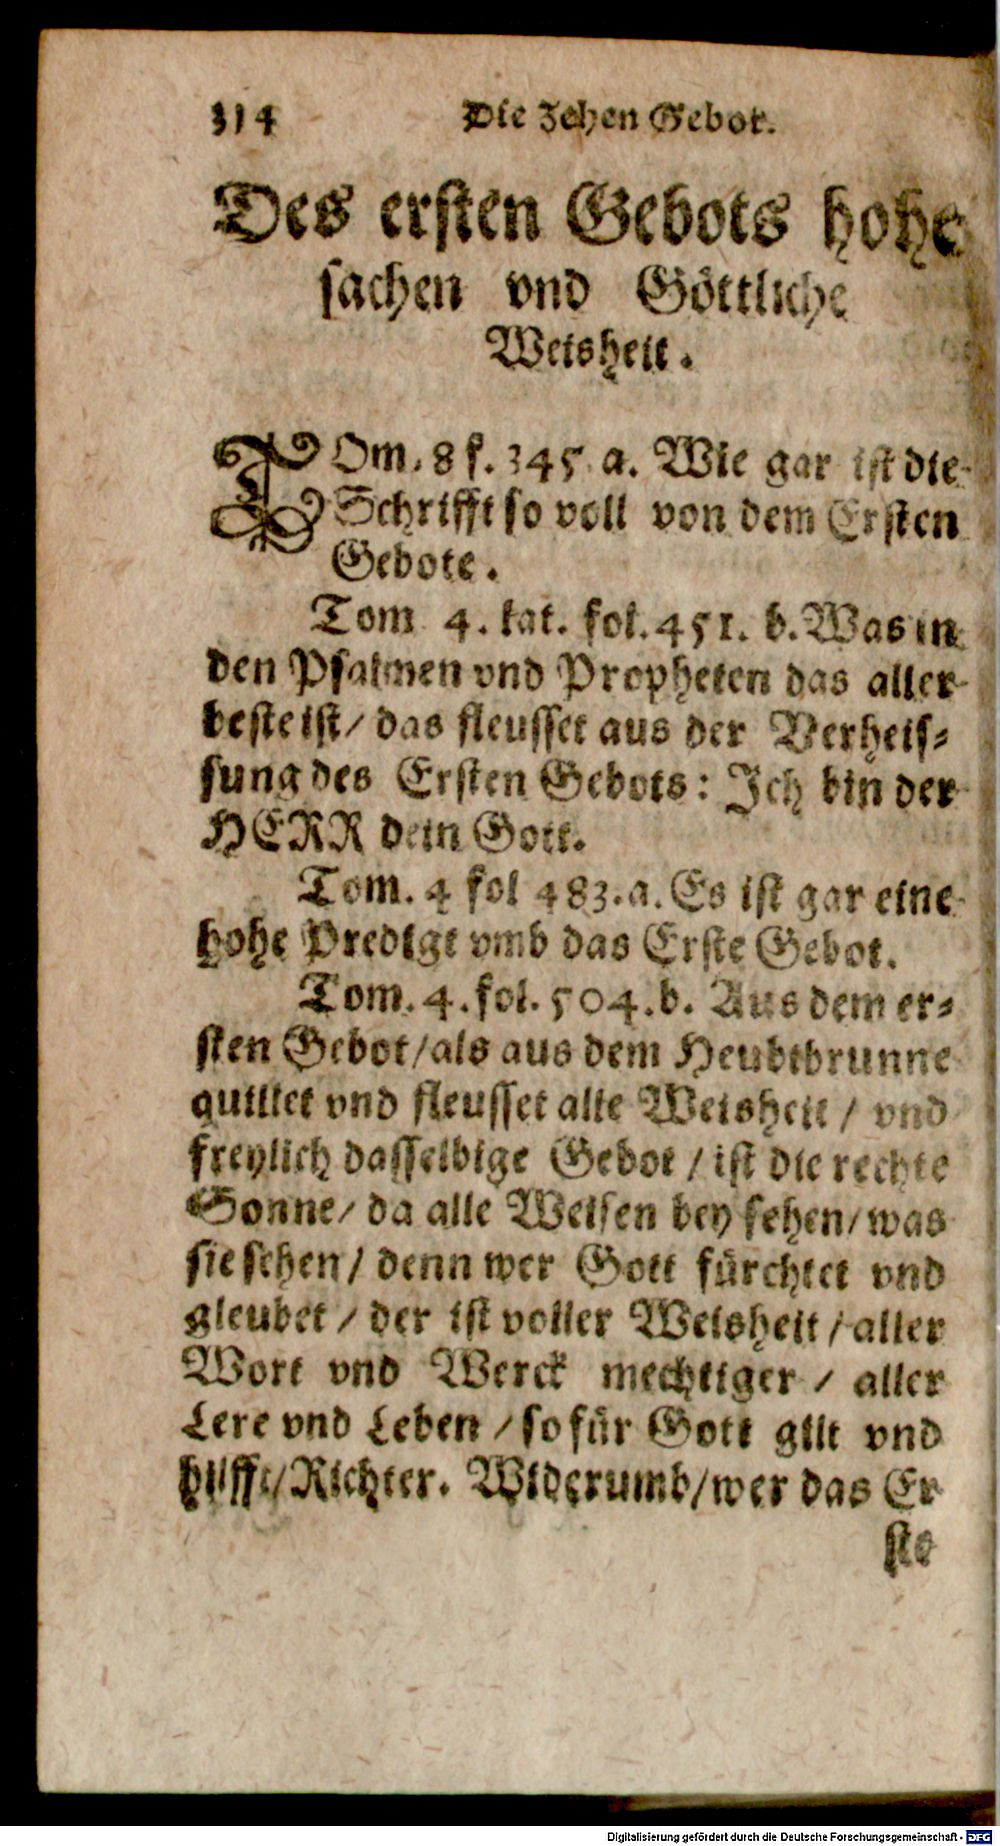 314 Die Zehen Gebot.
Des ersten Gebots hohe
sachen vnd Göttliche
Weisheit.
TOm. 8 f. 345. a. Wie gar ist die
Schrifft so voll von dem Ersten
Gebote.
Tom 4. lat. fol. 451. b. Was in
den Psalmen vnd Propheten das aller
beste ist/ das fleusset aus der Verheis⸗
sung des Ersten Gebots: Ich bin der
HERR dein Gott.
Tom. 4 fol 483. a. Es ist gar eine
hohe Predigt vmb das Erste Gebot.
Tom. 4. fol. 504. b. Aus dem er⸗
sten Gebot/ als aus dem Heubtbrunne
quillet vnd fleusset alle Weisheit / vnd
freylich dasselbige Gebot / ist die rechte
Sonne/ da alle Weisen bey sehen/ was
sie sehen/ denn wer Gott fürchtet vnd
gleubet / der ist voller Weisheit / aller
Wort vnd Werck mechtiger / aller
Lere vnd Leben / so für Gott gilt vnd
hilfft/ Richter. Widerumb/ wer das Er
ste
Digitalisierung gefördert durch die Deutsche Forschungsgemeinschaft - DFG